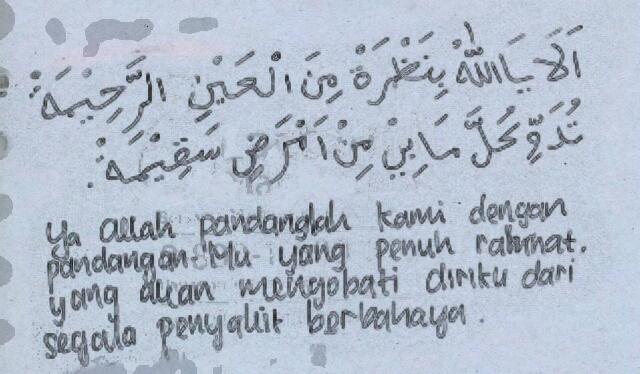 اَلَا يَااللهُ بِنَظْرَةْ مِنَ الْعَيْنِ الرَّحِيْمَةْ
تُدَوِّ كُلَّ مَابِيْ مِنْ اَمْرَضٍ سَقِيْمَةْ
Ya Allah pandanglah kami dengan
pandangan-Mu yang penuh rahmat.
yang akan mengobati diriku dari
segala penyakit berbahaya.